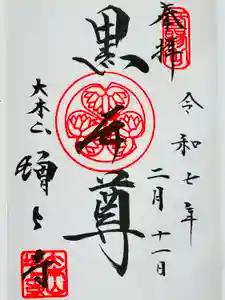 奉拝
令和七年
二月十一日
黒本尊
大本山
増上寺